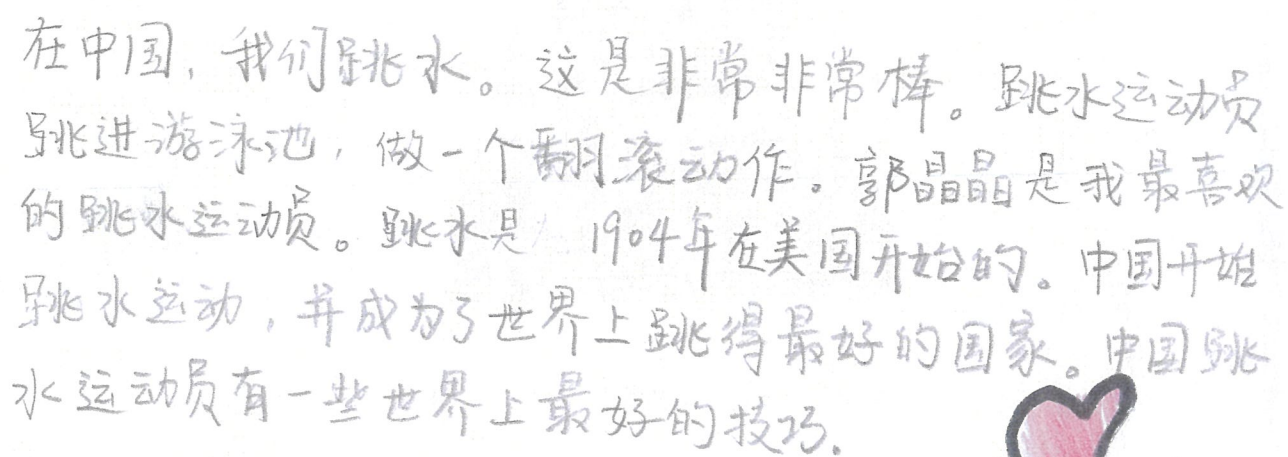 在中国，我们跳水。这是非常非常棒。跳水运动员
跳进游泳池，做一个翻滚动作。郭晶晶是我最喜欢
的跳水运动员。跳水是 1904年在美国开始的。中国开始
跳水运动，并成为了世界上跳得最好的国家。中国跳
水运动员有一些世界上最好的技巧.